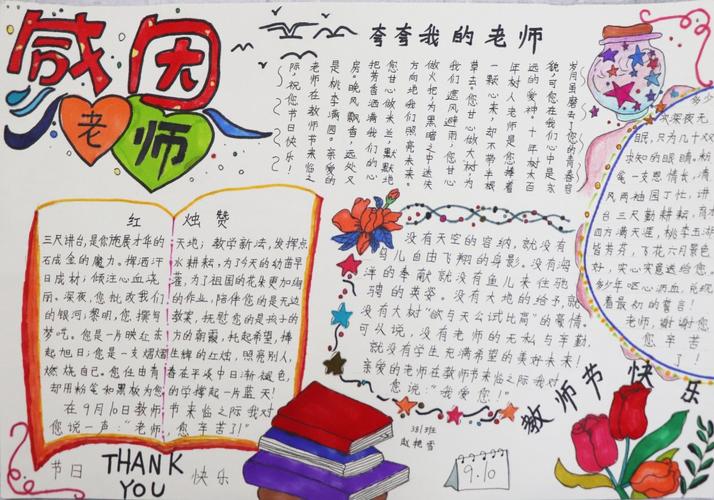 感恩
老师
夸夸我的老师
岁月虽磨去了您的青春容
貌,可您在我们心中是永
远的爱神。十年树木百
年树人老师是您捧着
一颗心来,却不带半根
草去。您甘心做大树为
我们遮风避雨;您甘心
做火把为黑暗之中迷失
方向地我们照亮未来。
您甘心做米兰,默默地
把芳香洒满我们的心
房。晚风飘香,远处又
是桃李满园。亲爱的
老师在教师节来临之
际,祝您节日快乐!
多少
次深夜无
眠,只为几十双
求知的眼睛,粉
笔一支恩情长,清
风两袖园丁忙,讲
台三尺勤耕耘,育
四方满天涯,桃李五湖
皆芳芬,飞花六月景色
好,实心实意送给您。
多少年呕心沥血,兑现
看最初的誓言!
老师,谢谢您
您辛苦
了!
红烛赞
三尺讲台,是你施展才华的天地;教学新法,发挥点
石成金的魔力。挥洒汗水耕耘,为了今天的幼苗早
日成材;倾注心血浇灌,为了祖国的花朵更加绚
丽。深夜,您批改我们的作业,陪伴您的是无边
的银河;黎明,您撰写教案,抚慰您的是孩子的
梦呓。您是一片映红东方的朝霞,托起希望,捧
起旭日;您是一支熠熠生辉的红烛,照亮别人,
燃烧自己。您任由青春在平淡中日渐褪色,
却用粉笔和黑板为您的学撑起一片蓝天!
在9月10日教师节来临之际我对
您说一声:“老师,您辛苦了!”
没有天空的容纳,就没有
鸟儿自由飞翔的身影。没有海
洋的奉献就没有鱼儿来往驰
骋的英姿。没有大地的给予,就
没有大树“欲与天公试比高”的豪情。
可以说,没有老师的无私与辛勤,
就没有学生充满希望的美好未来!
亲爱的老师在教师节来临之际我对
您说:“我爱您!”
教师节快乐
节日
THANK
YOU
快乐
381班
赵艳雪
9.10